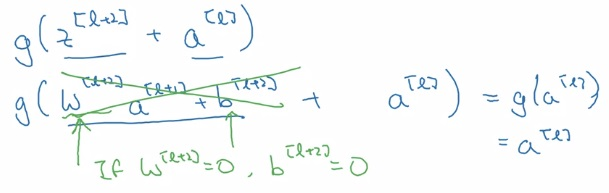 g(z^[l+2] + a^[l])
g(W^[l+2] a^[l+1] + b^[l+2] + a^[l]) = g(a^[l])
= a^[l]
If W^[l+2]=0, b^[l+2]=0